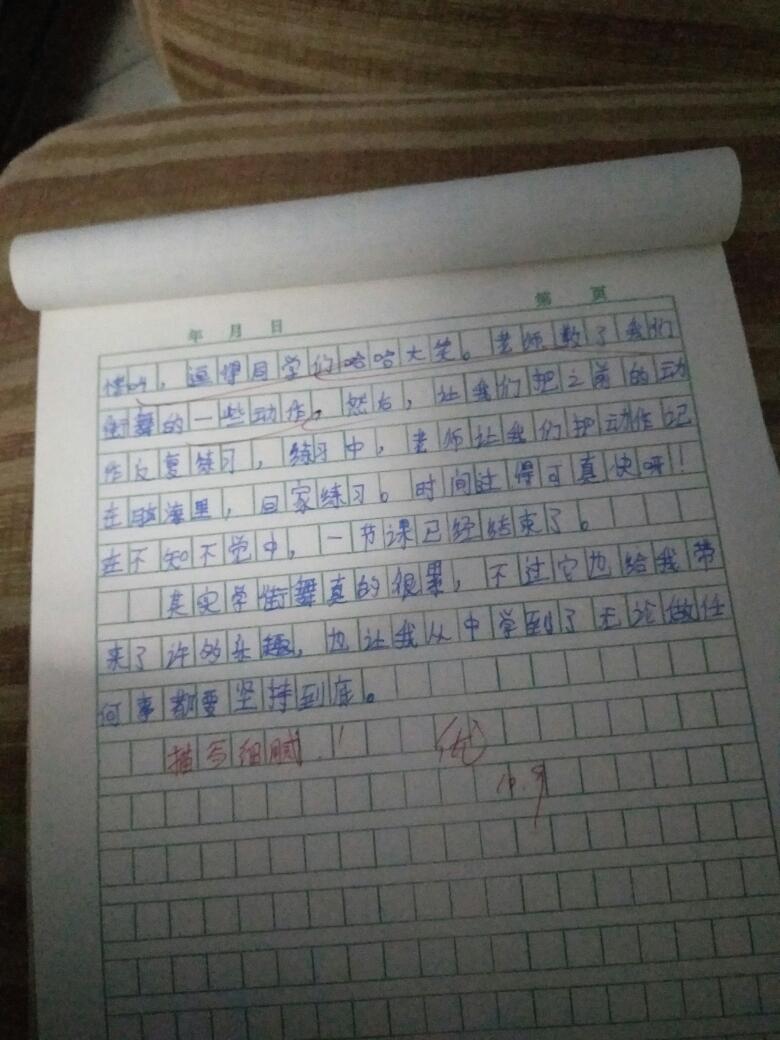 年 月 日
第 页
惜的，逗得同学们哈哈大笑。老师教了我们
街舞的一些动作。然后，让我们把之前的动
作反复练习，练习中，老师让我们把动作记
在脑海里，回家练习。时间过得可真快呀！
在不知不觉中，一节课已经结束了。
其实学街舞真的很累，不过它也给我带
来了许的乐趣，也让我从中学到了无论做任
何事都要坚持到底。
描写细腻！
优
10.9